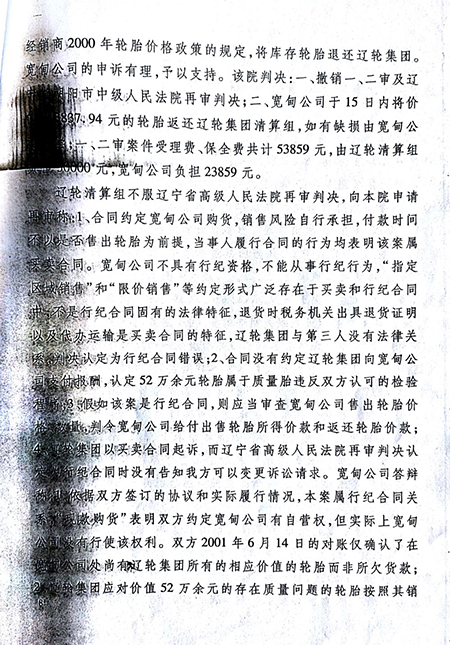 经销商 2000 年轮胎价格政策的规定，将库存轮胎退还辽轮集团。
宽甸公司的申诉有理，予以支持。该院判决：一、撤销一、二审及辽
阳市中级人民法院再审判决；二、宽甸公司于 15 日内将价
837.94 元的轮胎返还辽轮集团清算组，如有缺损由宽甸公
一、二审案件受理费、保全费共计 53859 元，由辽轮清算组
0000 元，宽甸公司负担 23859 元。
辽轮清算组不服辽宁省高级人民法院再审判决，向本院申请
称：1、合同约定宽甸公司购货，销售风险自行承担，付款时间
不以是否售出轮胎为前提，当事人履行合同的行为均表明该案属
买卖合同。宽甸公司不具有行纪资格，不能从事行纪行为，“指定
区域销售”和“限价销售”等约定形式广泛存在于买卖和行纪合同
中，不是行纪合同固有的法律特征，退货时税务机关出具退货证明
以及代办运输是买卖合同的特征，辽轮集团与第三人没有法律关
系，判决认定为行纪合同错误；2、合同没有约定辽轮集团向宽甸公
司支付报酬，认定 52 万余元轮胎属于质量胎违反双方认可的检验
3、假如该案是行纪合同，则应当审查宽甸公司售出轮胎价
判令宽甸公司给付出售轮胎所得价款和返还轮胎价款；
4、集团以买卖合同起诉，而辽宁省高级人民法院再审判决认
定行纪合同时没有告知我方可以变更诉讼请求。宽甸公司答辩
依据双方签订的协议和实际履行情况，本案属行纪合同关
系，购货”表明双方约定宽甸公司有自营权，但实际上宽甸
公司没有行使该权利。双方 2001 年 6 月 14 日的对账仅确认了在
公司处尚有辽轮集团所有的相应价值的轮胎而非所欠货款；
2、集团应对价值 52 万余元的存在质量问题的轮胎按照其销